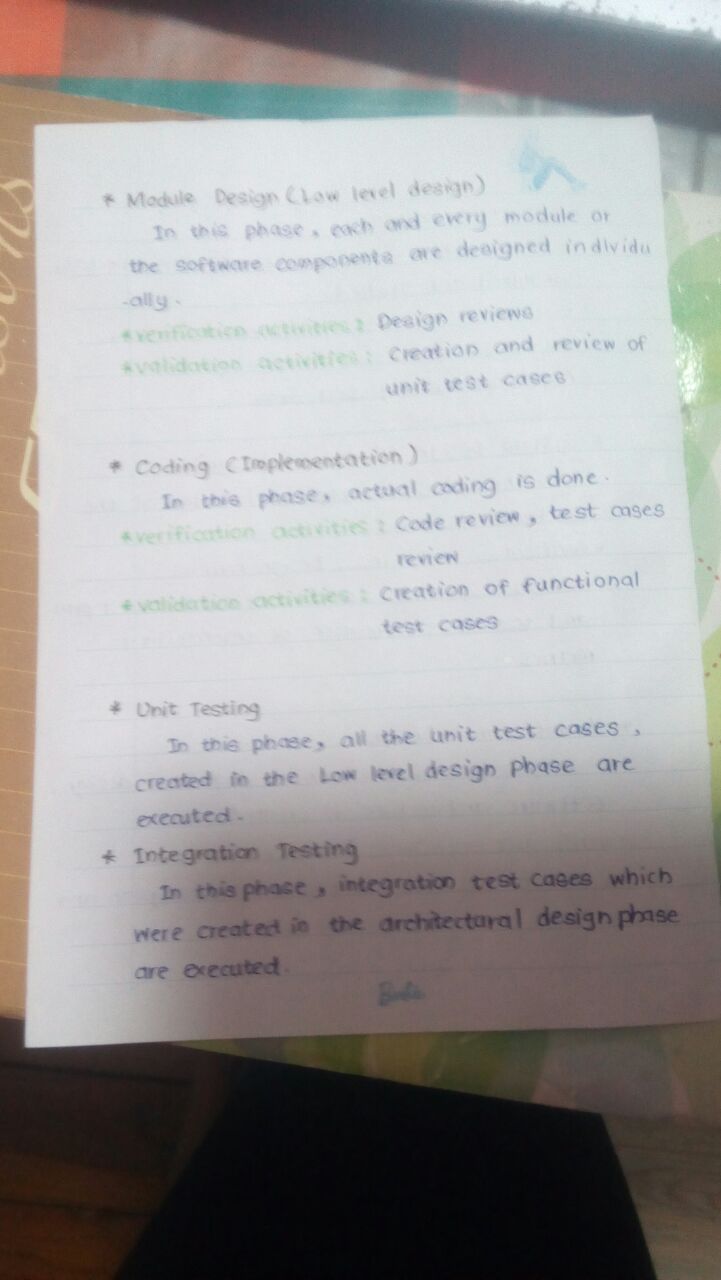 * Module Design (Low level design)
In this phase, each and every module or
the software components are designed individu
-ally.
*verification activities: Design reviews
*validation activities: Creation and review of
unit test cases
* Coding (Implementation)
In this phase, actual coding is done.
*verification activities: Code review, test cases
review
*validation activities: Creation of functional
test cases
* Unit Testing
In this phase, all the unit test cases,
created in the Low level design phase are
executed.
* Integration Testing
In this phase, integration test cases which
were created in the architectural design phase
are executed.
Barbie